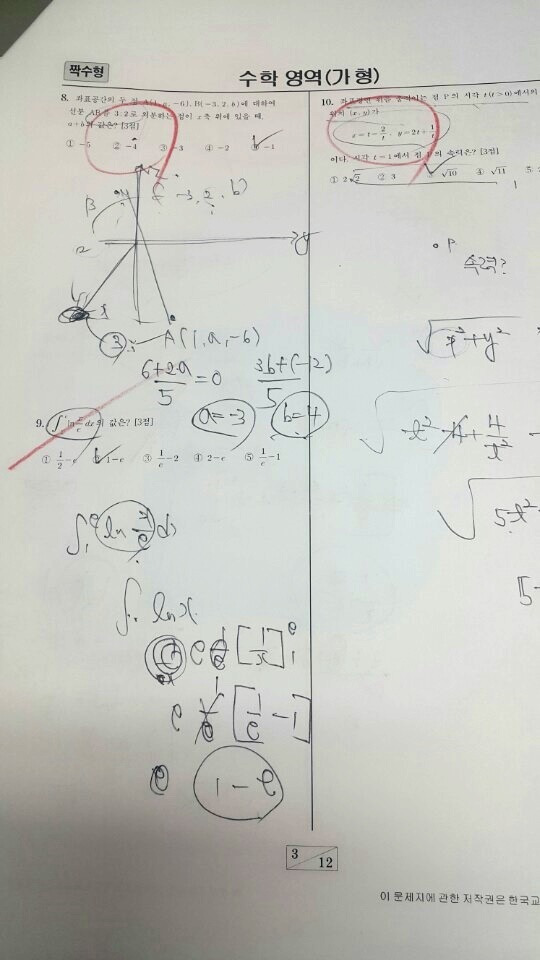 짝수형
수학 영역(가형)
8. 좌표공간의 두 점 A(1, a, -6), B(-3, 2, b)에 대하여
선분 AB를 3:2로 외분하는 점이 x축 위에 있을 때,
a+b의 값은? [3점]
① -5 ② -4 ③ -3 ④ -2 ⑤ -1
B
-3, 2, b)
y
3
A(1, a, -6)
6+2a/5 = 0 3b+(-12)/5
a=-3 b=4
9. dx의 값은? [3점]
① 1/2-e ② 1-e ③ 1/e-2 ④ 2-e ⑤ 1/e-1
∫₁ᵉ ln x/e dx
∫ ln x
e [1/x]₁ᵉ
e [1/e -1]
e 1-e
10. 좌표평면 위를 움직이는 점 P의 시각 t(t>0)에서의
위치 (x, y)가
x=t-2/t, y=2t+1/t
이다. 시각 t=1에서 점 P의 속력은? [3점]
① 2√2 ② 3 ③ √10 ④ √11
P
속력?
√x²+y²
t² -4+ 4/t²
√5t²
5-
3 12
이 문제지에 관한 저작권은 한국교